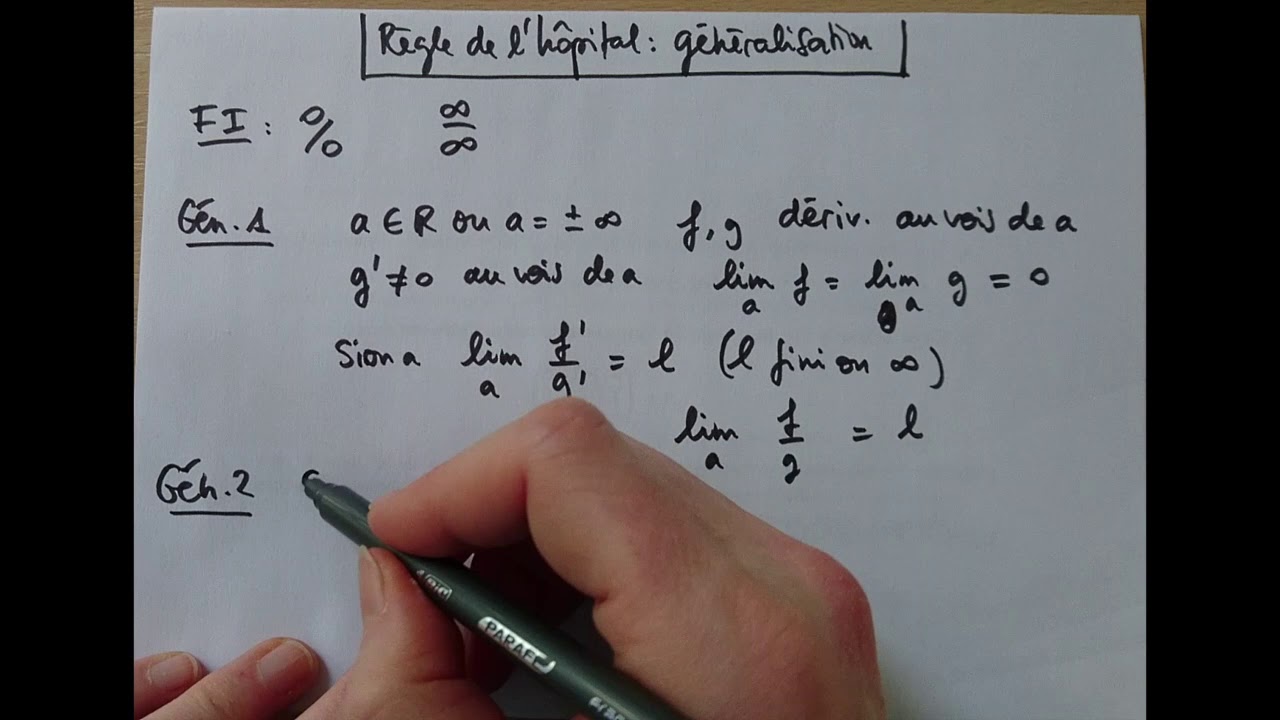 Règle de l'hôpital : généralisation
FI : 0/0 ∞/∞
Gén. 1 a ∈ R ou a = ± ∞ f, g dériv. au vois de a
g' ≠ 0 au vois de a lim_a f = lim_a g = 0
Si on a lim_a f'/g' = l (l fini ou ∞)
lim_a f/g = l
Gén. 2
PARAFE